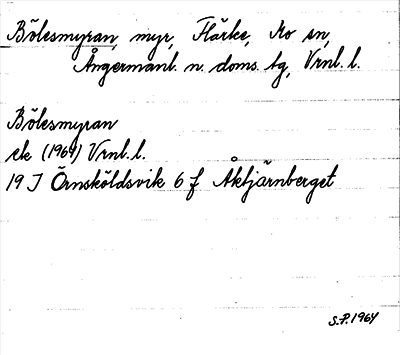 Bölesmyran, myr, Flärke, Mo sn,
Ångermanl. n. doms. tg, Vrnl. l.
Bölesmyran
ek (1964) Vrnl. l.
19 J Örnsköldsvik 6 f Åktjärnberget
S.P. 1964